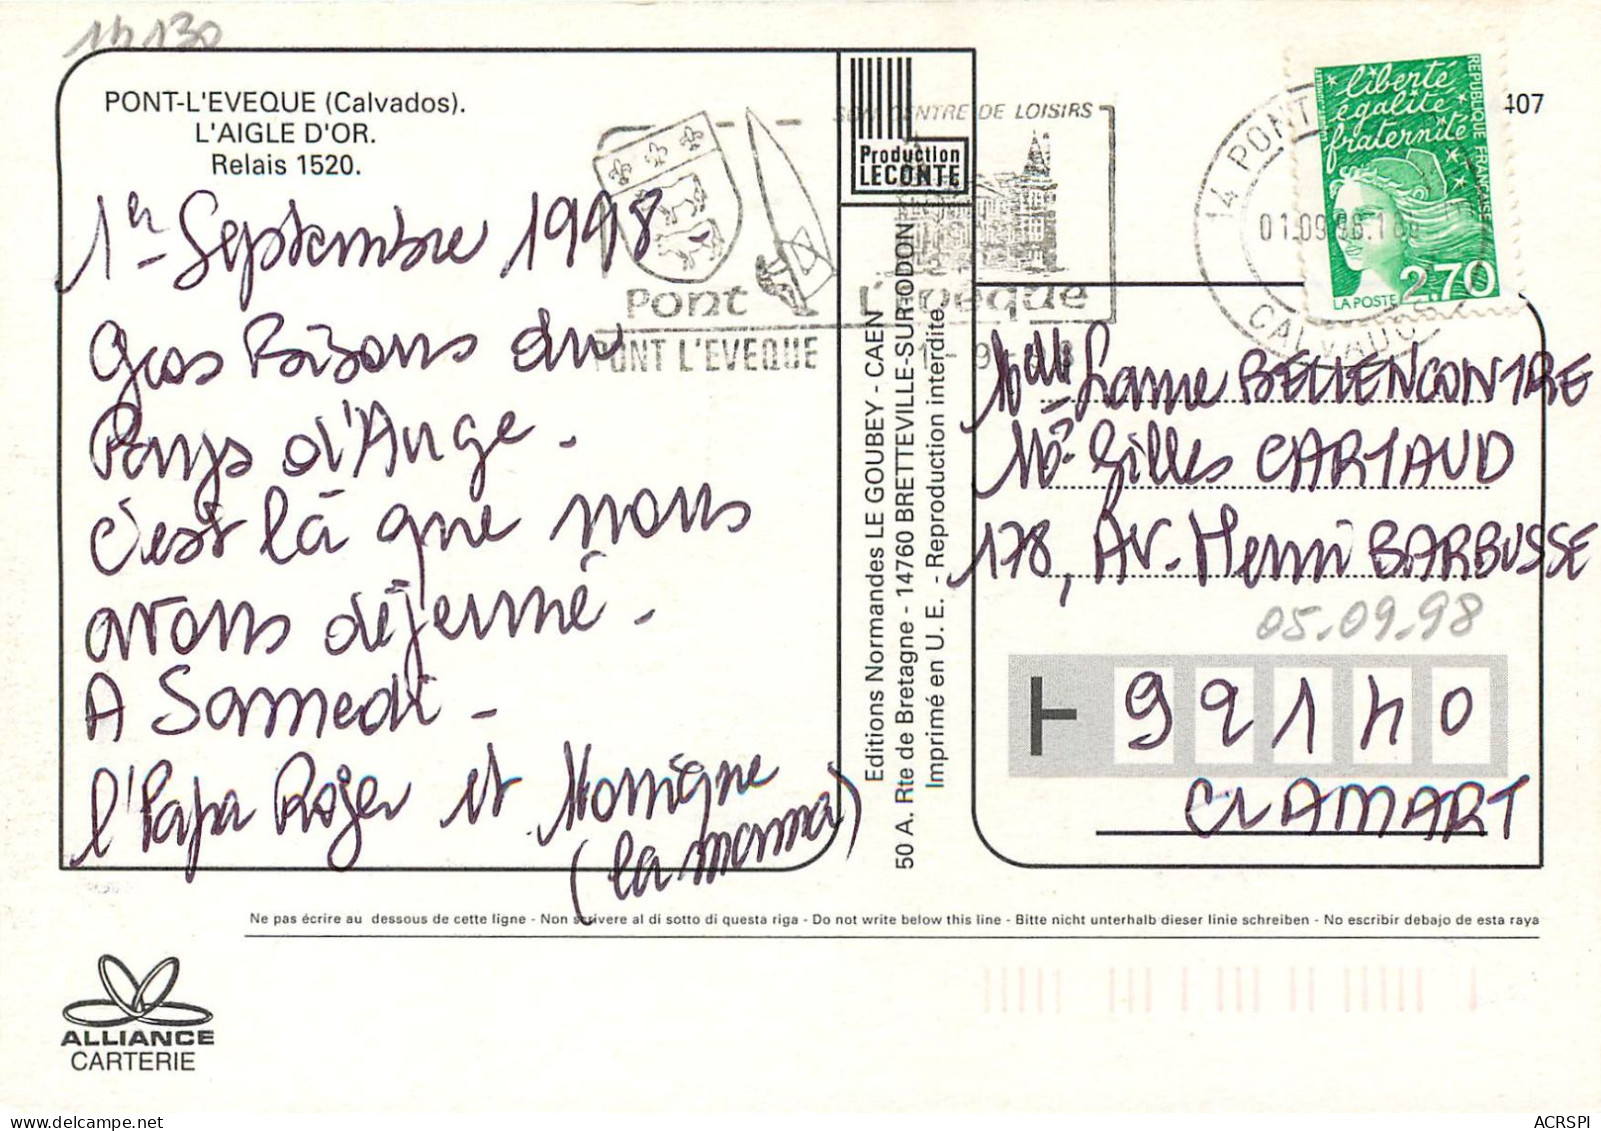 14130
PONT-L'EVEQUE (Calvados).
L'AIGLE D'OR.
Relais 1520.
1er Septembre 1998.
Gros Bisous du
Pays d'Auge.
c'est là que nous
avons déjeuné.
A Samedi -
l'Papa Roger et Monique
(la mama)
Production
LECONTE
SON CENTRE DE LOISIRS
Pont l'Eveque
PONT L'EVEQUE 1-9-98
14 PONT
01.09.98.18
CALVADOS
liberté
égalité
fraternité
RÉPUBLIQUE FRANÇAISE
2,70
LA POSTE
407
Editions Normandes LE GOUBEY - CAEN
50 A. Rte de Bretagne - 14760 BRETTEVILLE-SUR-ODON
Imprimé en U. E. - Reproduction interdite.
Melle BELLENCONTRE
Mr Gilles CARTAUD
178, Av. Henri BARBUSSE
05.09.98
92140
CLAMART
Ne pas écrire au dessous de cette ligne - Non scrivere al di sotto di questa riga - Do not write below this line - Bitte nicht unterhalb dieser linie schreiben - No escribir debajo de esta raya
ALLIANCE
CARTERIE
ACRSPI